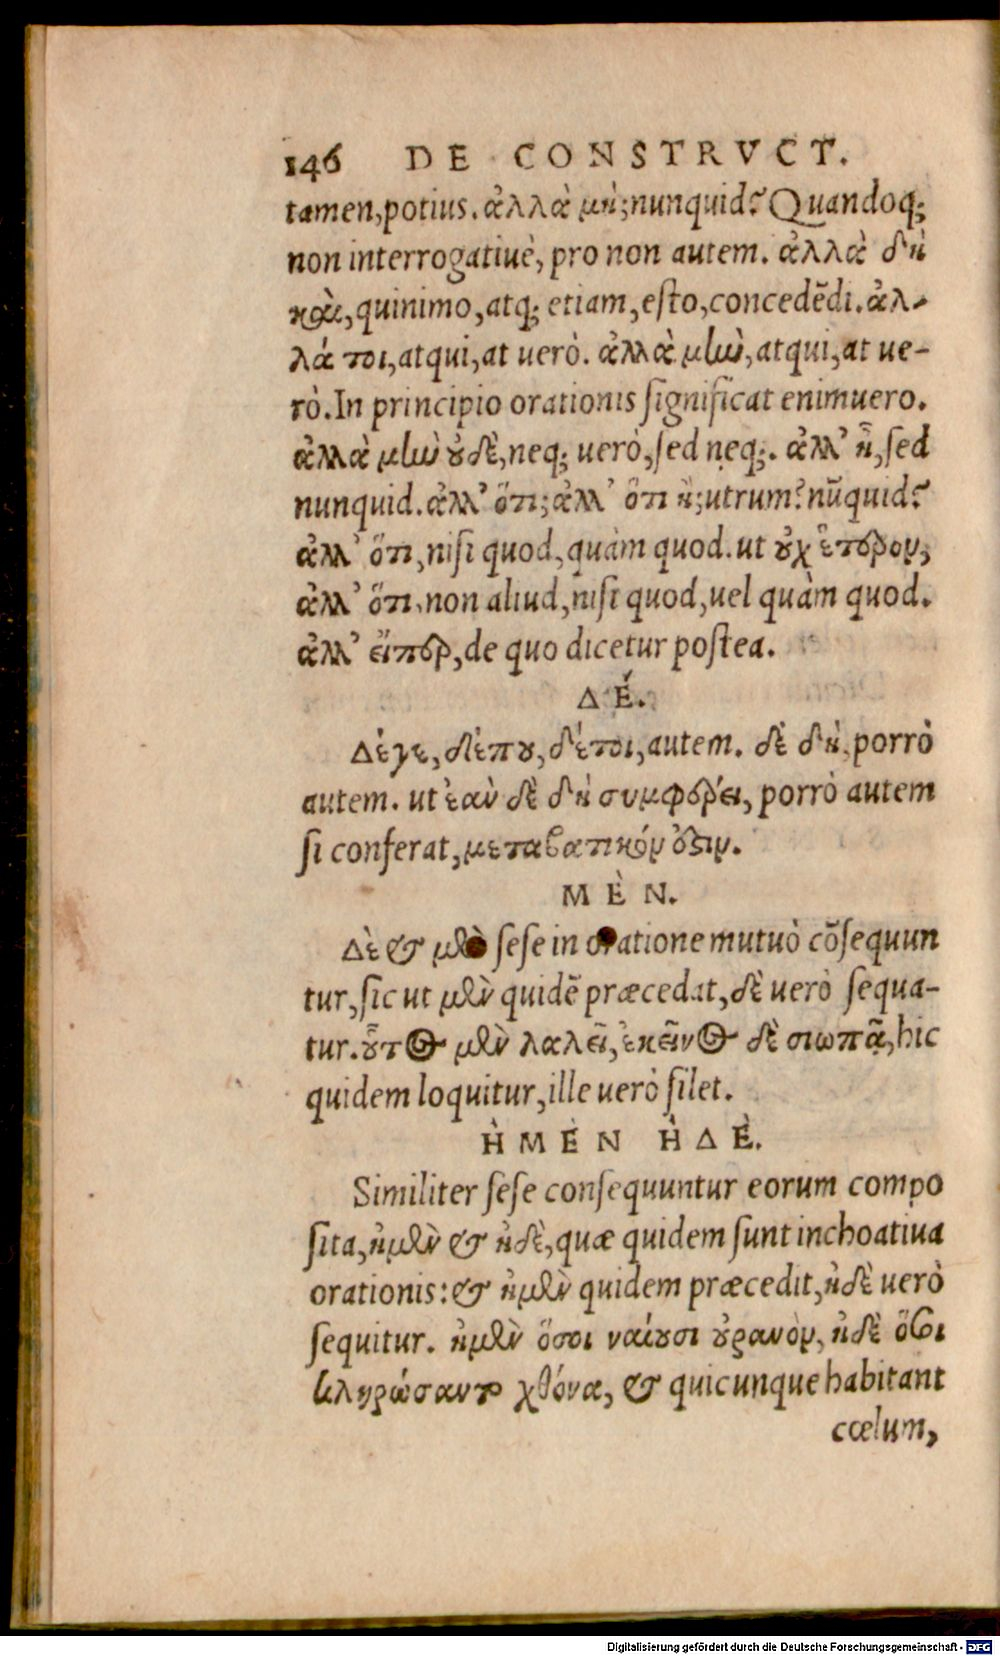 146 DE CONSTRVCT.
tamen,potius. ἀλλὰ μή;nunquid? Quandoq;
non interrogatiuè, pro non autem. ἀλλὰ δὴ
καὶ, quinimo, atq; etiam, esto, concedēdi. ἀλ-
λά τοι, atqui, at uerò. ἀλλὰ μὴν, atqui, at ue-
rò. In principio orationis significat enimuero.
ἀλλὰ μὴν ȣ̓δὲ, neq; uerò, sed neq;. ἀλλ' ἦ, sed
nunquid. ἀλλ' ὅτι; ἀλλ' ὅτι ἢ; utrum? nūquid?
ἀλλ' ὅτι, nisi quod, quàm quod. ut ȣ̓χ ἕτερον,
ἀλλ' ὅτι, non aliud, nisi quod, uel quàm quod.
ἀλλ' εἴπερ, de quo dicetur postea.
ΔΈ.
Δέγε, δέπȣ, δέτοι, autem. δὲ δὴ, porrò
autem. ut ἐὰν δὲ δὴ συμφέρει, porrò autem
si conferat, μεταβατικόν ὅξιν.
ΜῈΝ.
Δὲ & sese in oratione mutuò cōsequun
tur, sic ut μὲν quidē præcedat, δὲ uerò sequa-
tur. ȣ̔͂τος μὲν λαλεῖ, ἐκεῖνος δὲ σιωπᾷ, hic
quidem loquitur, ille uerò silet.
ἨΜῈΝ ἨΔῈ.
Similiter sese consequuntur eorum compo
sita, ἠμὲν & ἠδὲ, quæ quidem sunt inchoatiua
orationis: & ἠμὲν quidem præcedit, ἠδὲ uerò
sequitur. ἠμὲν ὅσοι ναίȣσι ȣ̓ρανὸν, ἠδὲ ὅσοι
κληρώσαντο χθόνα, & quicunque habitant
cœlum,
Digitalisierung gefördert durch die Deutsche Forschungsgemeinschaft - DFG